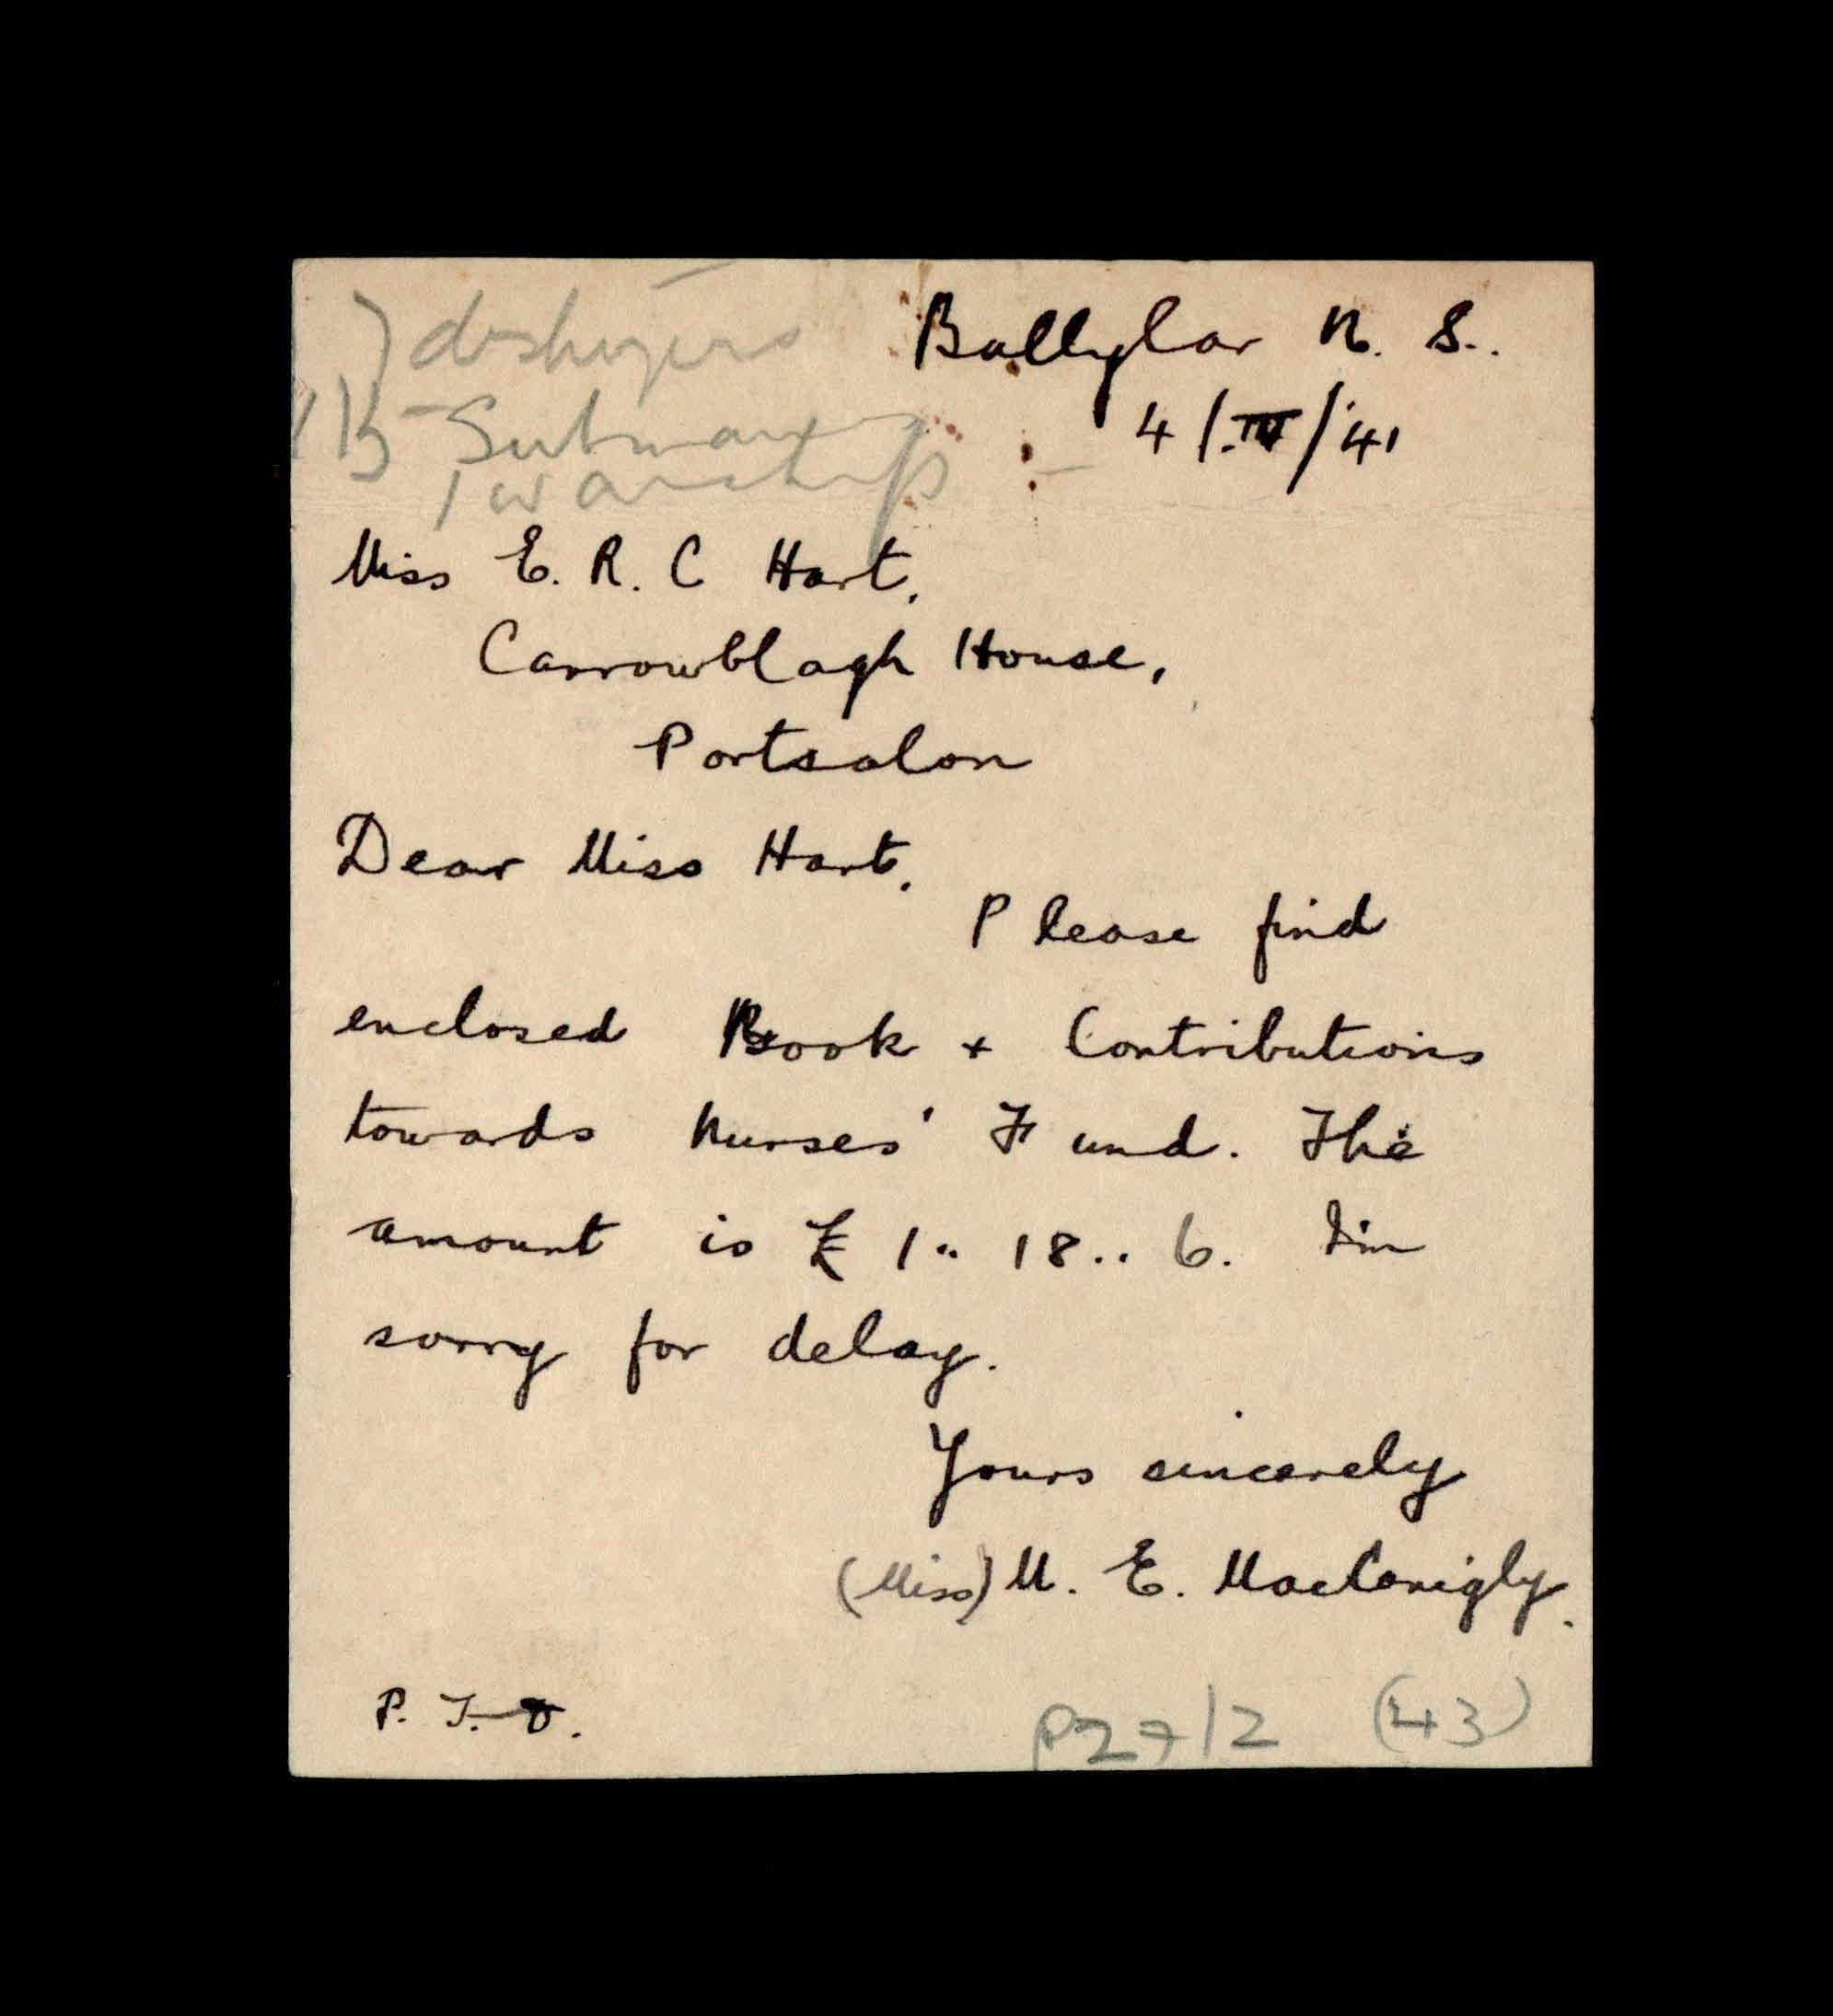 destroyers
Submarine
1 warship
Ballylar N. S.
4/IV/41
Miss E. R. C Hart,
Carrowblagh House,
Portsalon
Dear Miss Hart,
Please find
enclosed Book + Contributions
towards Nurses' Fund. The
amount is £ 1.. 18.. 6. I'm
sorry for delay.
Yours sincerely
(Miss) M. E. MacConigly.
P. T. O.
P2712 (43)